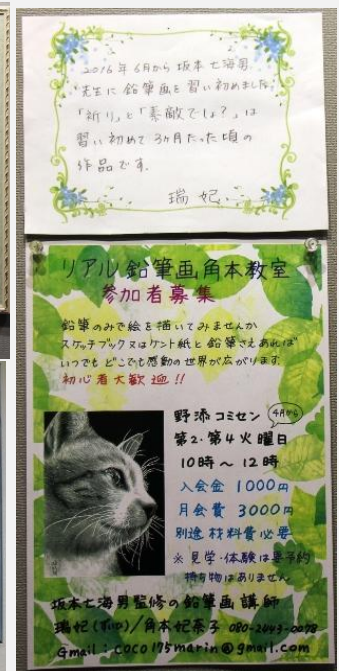 2016年6月から 坂本七海男
先生に 鉛筆画を 習い初めました。
「祈り」と「素敵でしょ?」は
習い初めて 3ヶ月たった頃の
作品です。
瑞妃
リアル鉛筆画角本教室
参加者募集
鉛筆のみで絵を描いてみませんか
スケッチブック又はケント紙と鉛筆さえあれば
いつでもどこでも感動の世界が広がります
初心者大歓迎!!
野添コミセン 4月から
第2・第4火曜日
10時〜12時
入会金 1000円
月会費 3000円
別途材料費必要
※見学・体験は要予約
持ち物はありません
坂本七海男監修の鉛筆画講師
瑞妃(ずいひ)/角本妃菜子 080-2443-0078
Gmail:coco175marin@gmail.com